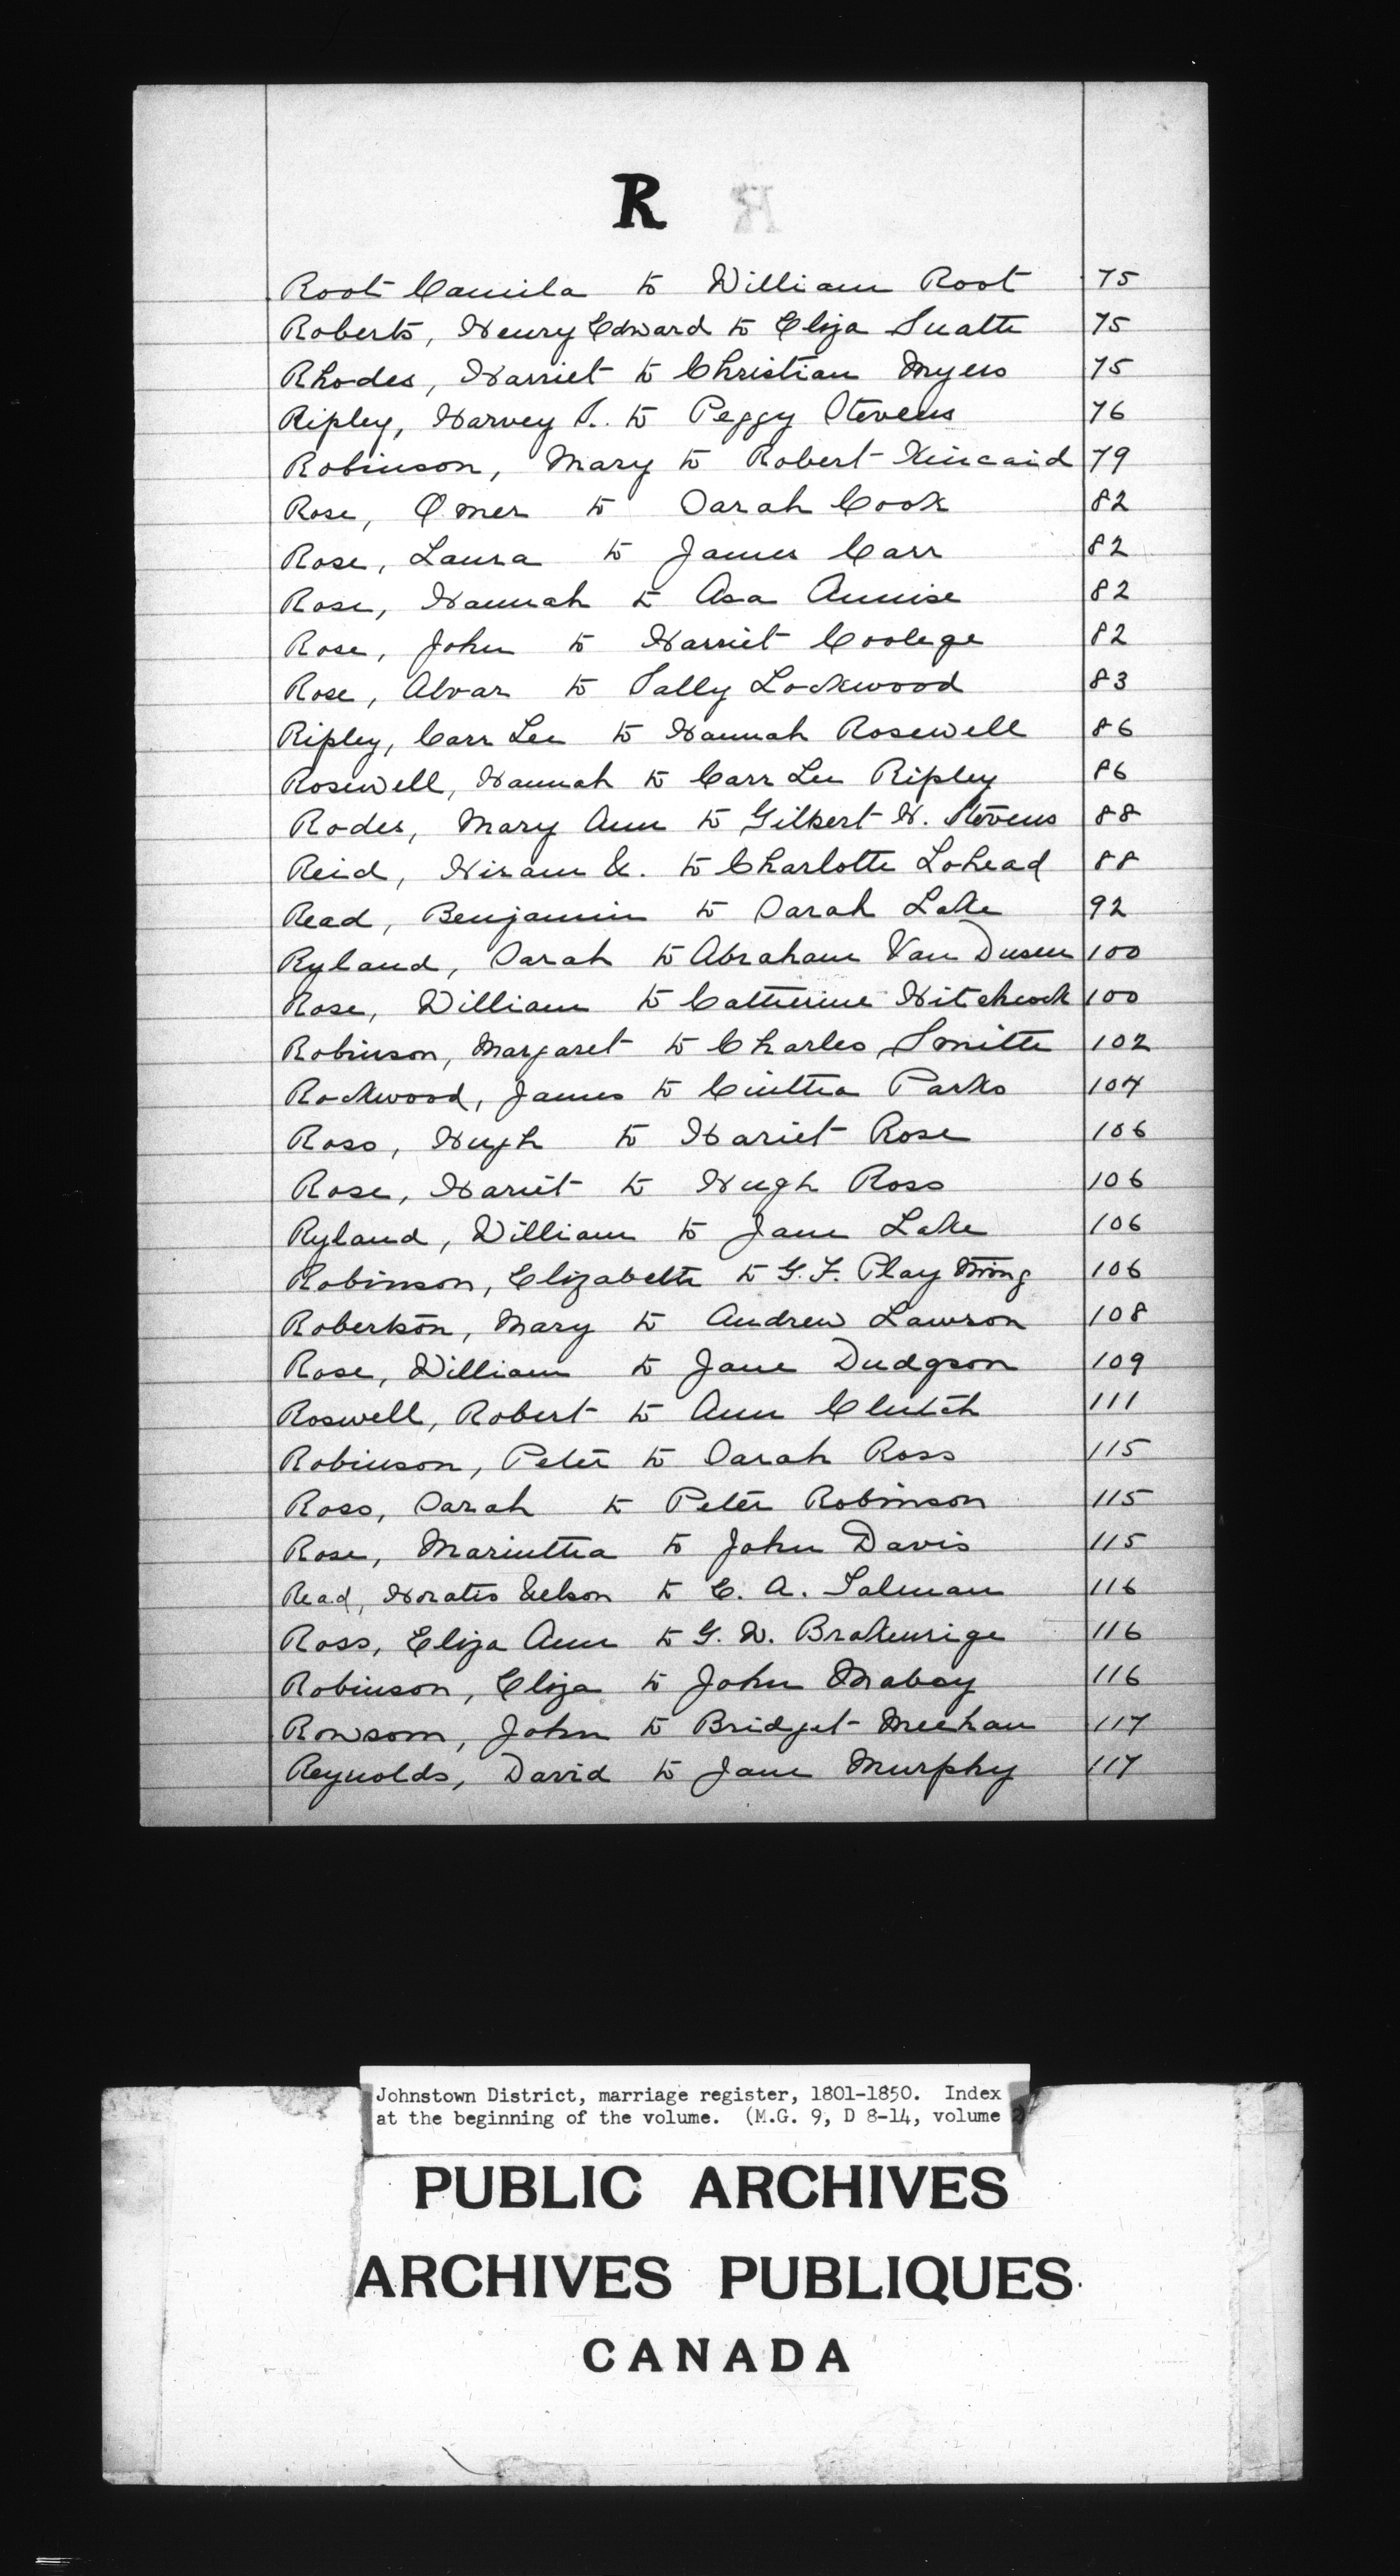 R
Root Camila to William Root 75
Roberts, Henry Edward to Eliza 75
Rhodes, Harriet to Christian Myers 75
Ripley, Harvey S. to Peggy Stevens 76
Robinson, Mary to Robert Kincaid 79
Rose, Omer to Sarah Cook 82
Rose, Laura to James Carr 82
Rose, Hannah to Asa Annise 82
Rose, John to Harriet Coolege 82
Rose, Alvar to Sally Lockwood 83
Ripley, Carr Lee to Hannah Rosewell 86
Rosewell, Hannah to Carr Lee Ripley 86
Rodes, Mary Ann to Gilbert H. Stevens 88
Reid, Hiram &. to Charlotte Lohead 88
Read, Benjamin to Sarah Lake 92
Ryland, Sarah to Abraham Van Dusen 100
Rose, William to Catherine Hitchcock 100
Robinson, Margaret to Charles Smith 102
Rockwood, James to Cinthia Parks 104
Ross, Hugh to Hariet Rose 106
Rose, Hariet to Hugh Ross 106
Ryland, William to Jane Lake 106
Robinson, Elizabeth to G. F. Play 106
Robertson, Mary to Andrew Lawson 108
Rose, William to Jane Dudgson 109
Roswell, Robert to Ann Clutch 111
Robinson, Peter to Sarah Ross 115
Ross, Sarah to Peter Robinson 115
Rose, Marinthia to John Davis 115
Read, Horatio Nelson to E. A. Salman 116
Ross, Eliza Ann to G. W. Brakenrige 116
Robinson, Eliza to John Mabey 116
Rowsom, John to Bridget Meehan 117
Reynolds, David to Jane Murphy 117
Johnstown District, marriage register, 1801-1850. Index
at the beginning of the volume. (M.G. 9, D 8-14, volume
PUBLIC ARCHIVES
ARCHIVES PUBLIQUES
CANADA